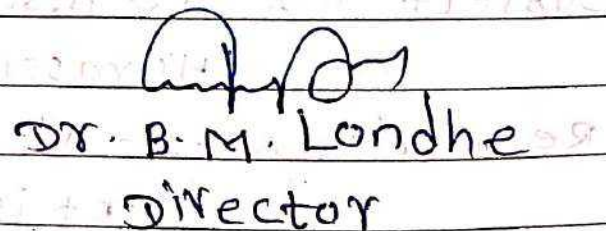 Dr. B. M. Londhe
Director